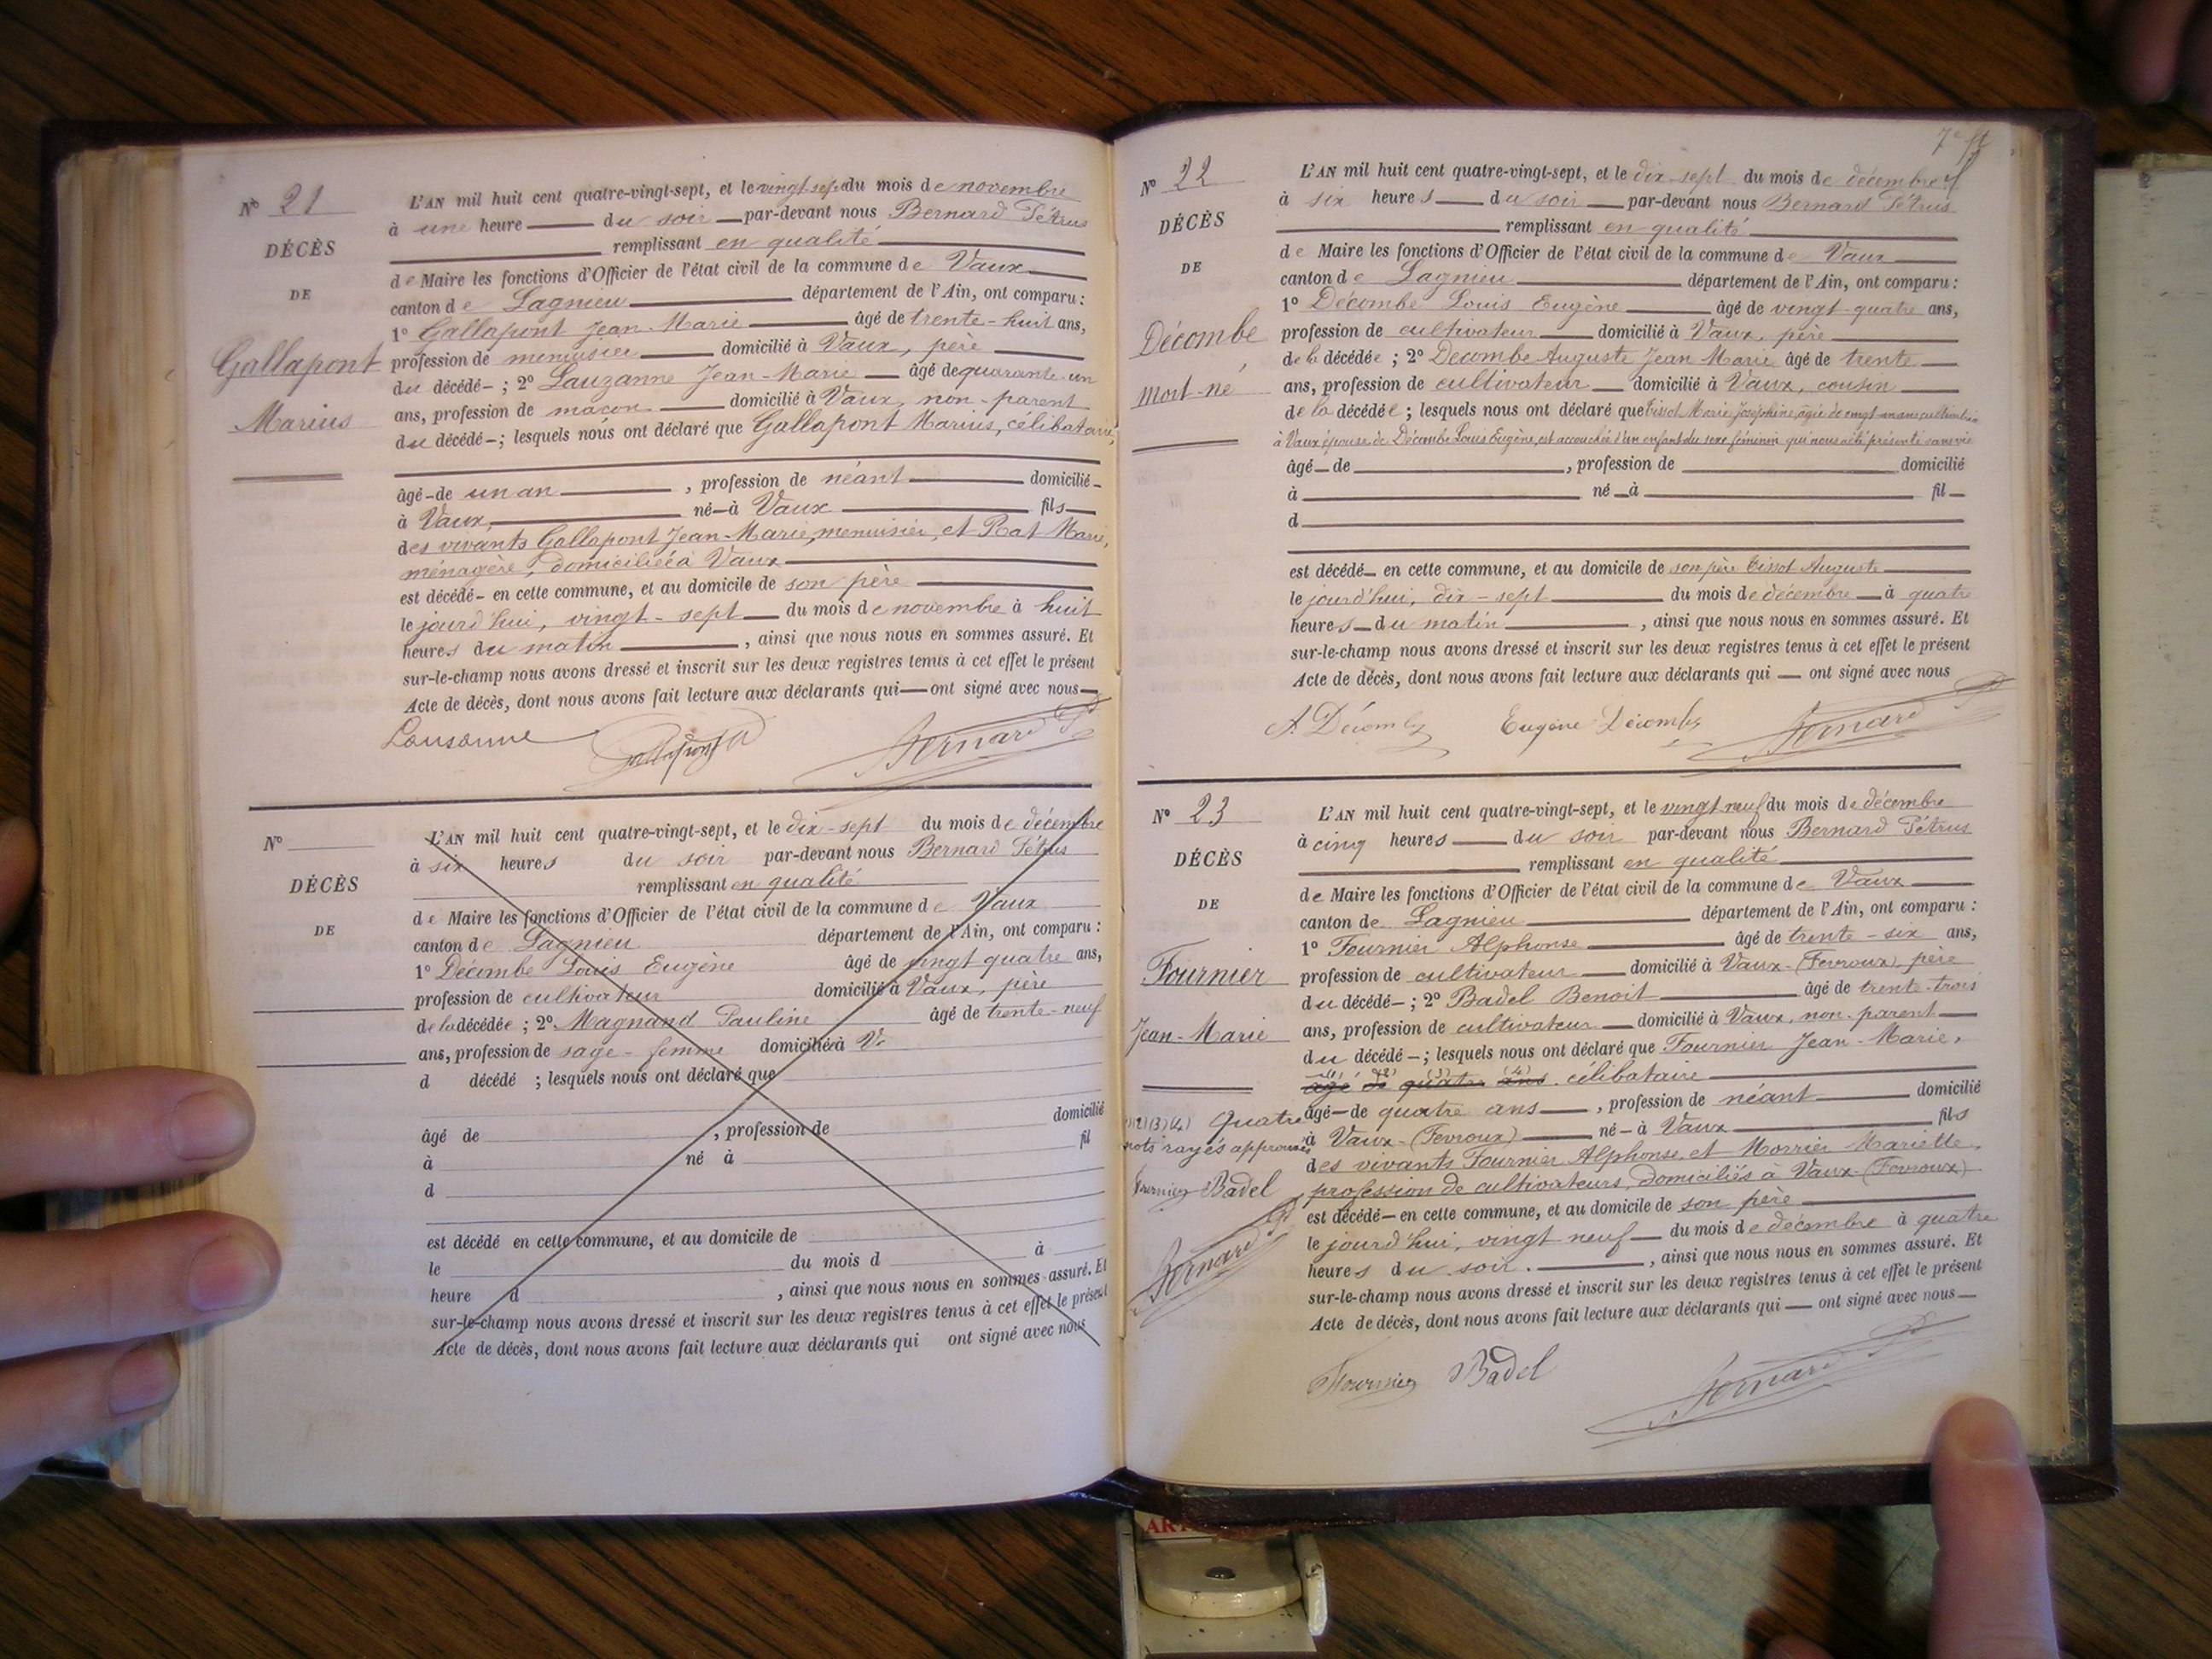 Nº 21
DÉCÈS
DE
Gallapont
Marius
L'AN mil huit cent quatre-vingt-sept, et le vingt-sept du mois de novembre
à une heure du soir par-devant nous Bernard Pétrus
remplissant en qualité
de Maire les fonctions d'Officier de l'état civil de la commune de Vaux
canton de Lagnieu département de l'Ain, ont comparu :
1º Gallapont Jean-Marie âgé de trente-huit ans,
profession de menuisier domicilié à Vaux, père
du décédé ; 2º Lauzanne Jean-Marie âgé de quarante-un
ans, profession de maçon domicilié à Vaux, non-parent
du décédé ; lesquels nous ont déclaré que Gallapont Marius, célibataire,
âgé de un an , profession de néant domicilié
à Vaux né à Vaux fils
des vivants Gallapont Jean-Marie, menuisier, et Rat Marie,
ménagère, domiciliée à Vaux
est décédé en cette commune, et au domicile de son père
le jourd'hui, vingt-sept du mois de novembre à huit
heures du matin , ainsi que nous nous en sommes assuré. Et
sur-le-champ nous avons dressé et inscrit sur les deux registres tenus à cet effet le présent
Acte de décès, dont nous avons fait lecture aux déclarants qui ont signé avec nous
Lausanne Gallapont Bernard P
Nº
DÉCÈS
DE
L'AN mil huit cent quatre-vingt-sept, et le dix-sept du mois de décembre
à six heures du soir par-devant nous Bernard Pétrus
remplissant en qualité
de Maire les fonctions d'Officier de l'état civil de la commune de Vaux
canton de Lagnieu département de l'Ain, ont comparu :
1º Décombe Louis Eugène âgé de vingt quatre ans,
profession de cultivateur domicilié à Vaux, père
de la décédée ; 2º Magnand Pauline âgé de trente-neuf
ans, profession de sage-femme domiciliée à V
d décédé ; lesquels nous ont déclaré que
âgé de , profession de domicilié
à né à fil
d
est décédé en cette commune, et au domicile de
le du mois d à
heure d , ainsi que nous nous en sommes assuré. Et
sur-le-champ nous avons dressé et inscrit sur les deux registres tenus à cet effet le présent
Acte de décès, dont nous avons fait lecture aux déclarants qui ont signé avec nous
7e ft
Nº 22
DÉCÈS
DE
Décombe
mort-né
L'AN mil huit cent quatre-vingt-sept, et le dix-sept du mois de décembre
à six heures du soir par-devant nous Bernard Pétrus
remplissant en qualité
de Maire les fonctions d'Officier de l'état civil de la commune de Vaux
canton de Lagnieu département de l'Ain, ont comparu :
1º Décombe Louis Eugène âgé de vingt-quatre ans,
profession de cultivateur domicilié à Vaux, père
de la décédée ; 2º Decombe Auguste Jean Marie âgé de trente
ans, profession de cultivateur domicilié à Vaux, cousin
de la décédée ; lesquels nous ont déclaré que Tissot Marie Joséphine, âgée de vingt-un ans
à Vaux épouse de Décombe Louis Eugène, est accouchée d'un enfant du sexe féminin qui nous a été présenté sans vie
âgé de , profession de domicilié
à né à fil
d
est décédé en cette commune, et au domicile de son père Tissot Auguste
le jourd'hui, dix-sept du mois de décembre à quatre
heures du matin , ainsi que nous nous en sommes assuré. Et
sur-le-champ nous avons dressé et inscrit sur les deux registres tenus à cet effet le présent
Acte de décès, dont nous avons fait lecture aux déclarants qui ont signé avec nous
A. Décombe Eugène Décombe Bernard P
Nº 23
DÉCÈS
DE
Fournier
Jean-Marie
(1)(2)(3)(4) Quatre
mots rayés approuvés
Fournier Badel
Bernard P
L'AN mil huit cent quatre-vingt-sept, et le vingt neuf du mois de décembre
à cinq heures du soir par-devant nous Bernard Pétrus
remplissant en qualité
de Maire les fonctions d'Officier de l'état civil de la commune de Vaux
canton de Lagnieu département de l'Ain, ont comparu :
1º Fournier Alphonse âgé de trente-six ans,
profession de cultivateur domicilié à Vaux-(Fevroux), père
du décédé ; 2º Badel Benoit âgé de trente-trois
ans, profession de cultivateur domicilié à Vaux, non-parent
du décédé ; lesquels nous ont déclaré que Fournier Jean-Marie,
âgé de quatre ans célibataire
âgé de quatre ans , profession de néant domicilié
à Vaux-(Fevroux) né à Vaux fils
des vivants Fournier Alphonse, et Morrier Mariette,
profession de cultivateurs, domiciliés à Vaux-(Fevroux)
est décédé en cette commune, et au domicile de son père
le jourd'hui, vingt neuf du mois de décembre à quatre
heures du soir. , ainsi que nous nous en sommes assuré. Et
sur-le-champ nous avons dressé et inscrit sur les deux registres tenus à cet effet le présent
Acte de décès, dont nous avons fait lecture aux déclarants qui ont signé avec nous
Fournier Badel Bernard P